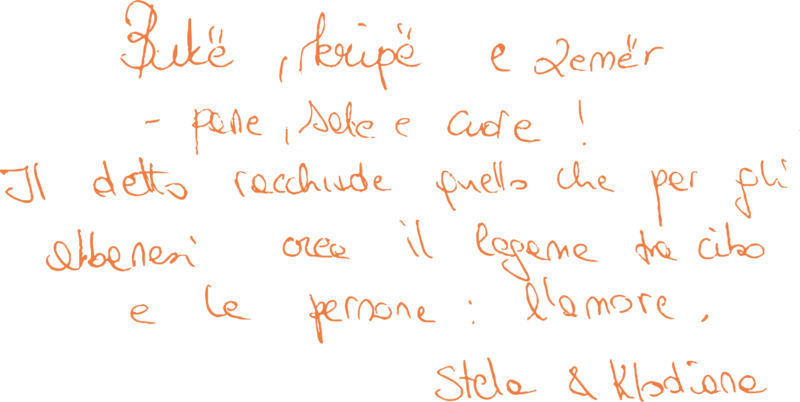 Bukë, kripë e zemër
- pane, sale e cuore!
Il detto racchiude quello che per gli
albanesi crea il legame tra cibo
e le persone: l'amore.
Stela & Klodiana